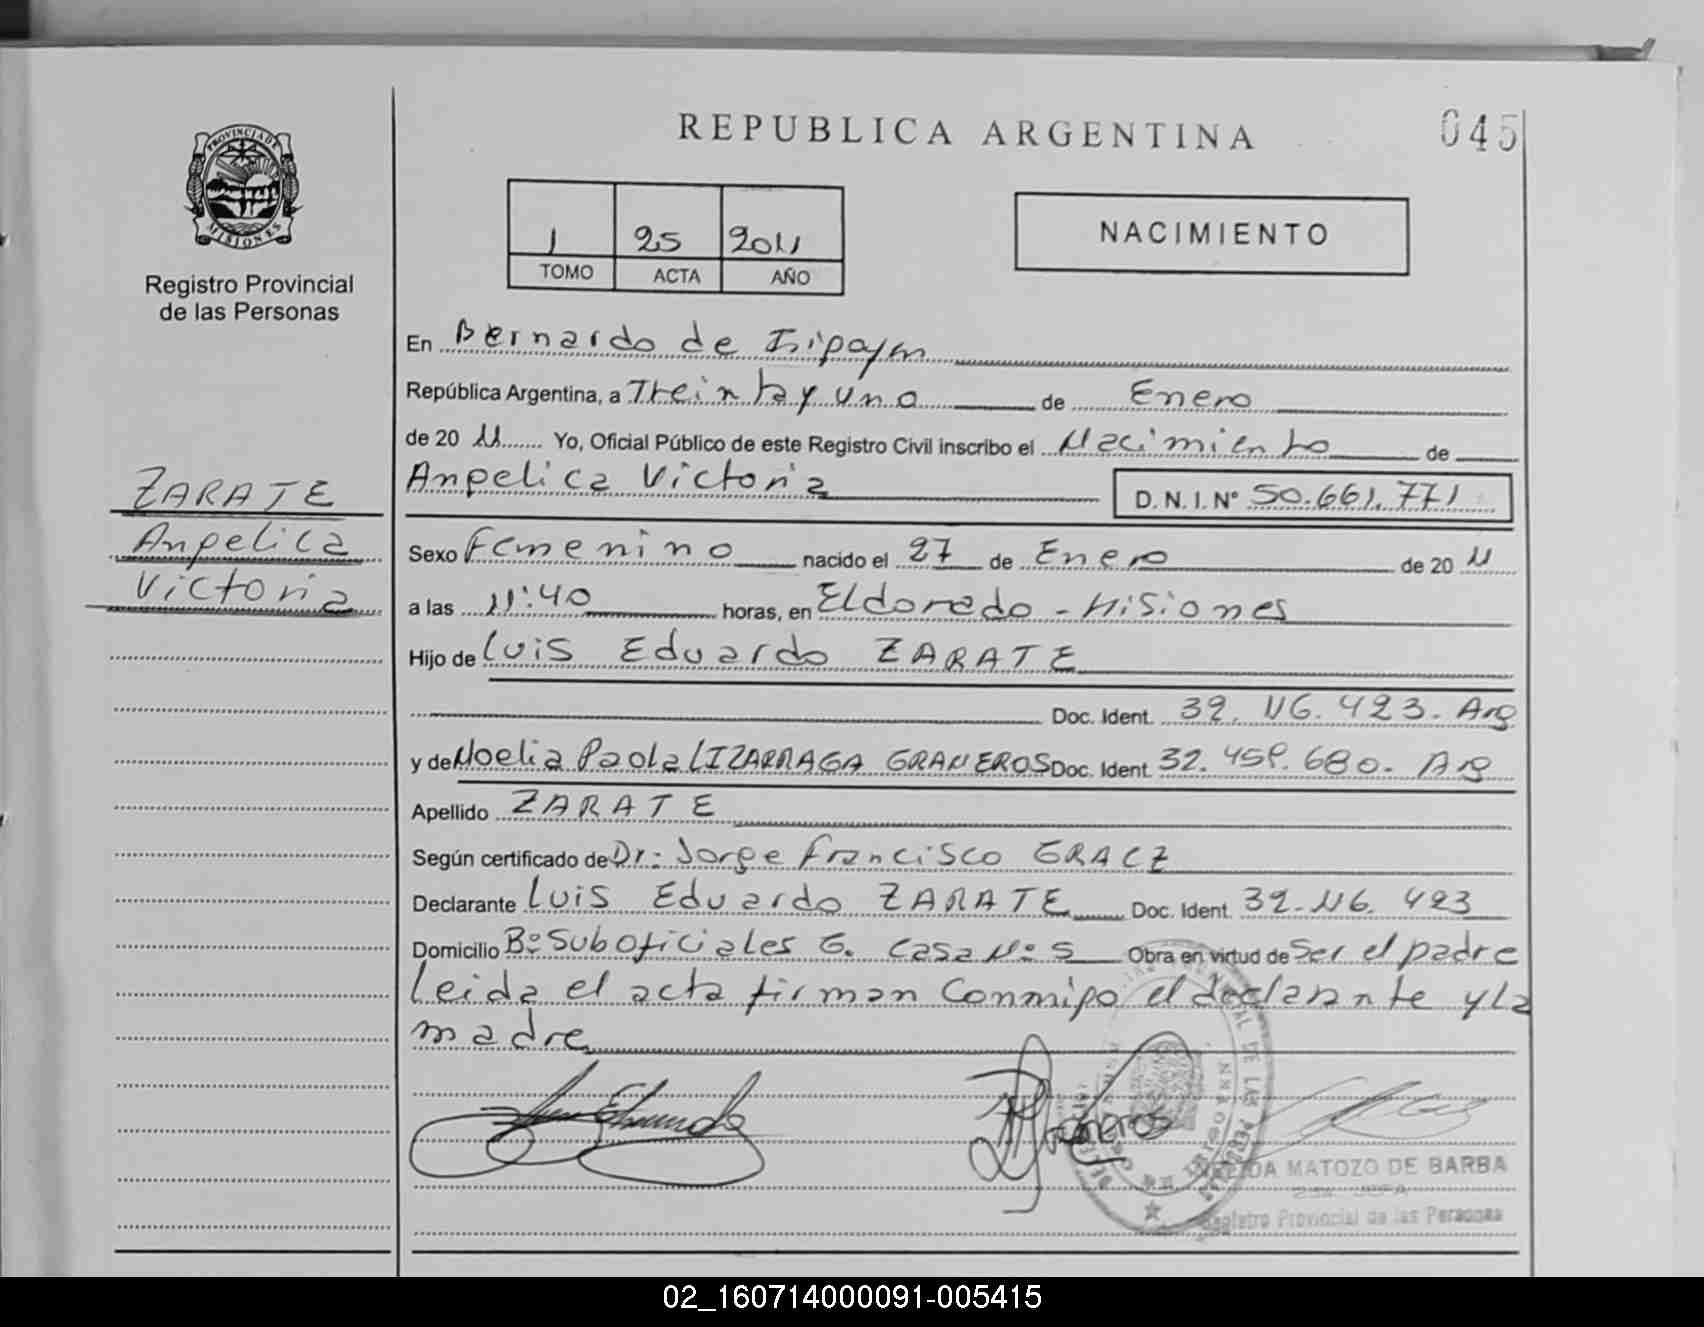 REPUBLICA ARGENTINA
045
PROVINCIA DE
MISIONES
Registro Provincial
de las Personas
1 25 2011
TOMO ACTA AÑO
NACIMIENTO
En Bernardo de Irigoyen
República Argentina, a Treinta y uno de Enero
de 20 11 Yo, Oficial Público de este Registro Civil inscribo el Nacimiento de
Angelica Victoria D.N.I. Nº 50.661.771
ZARATE
Angelica
Victoria
Sexo Femenino nacido el 27 de Enero de 20 11
a las 11:40 horas, en Eldorado - Misiones
Hijo de Luis Eduardo ZARATE
Doc. Ident. 32.116.423. Arg
y de Noelia Paola LIZARRAGA GRANEROS Doc. Ident. 32.458.680. Arg
Apellido ZARATE
Según certificado de Dr: Jorge Francisco
Declarante Luis Eduardo ZARATE Doc. Ident. 32.116.423
Domicilio Bº Suboficiales G. Casa Nº 5 Obra en virtud de Ser el padre
Leida el acta firman conmigo el declarante y la
madre
MATOZO DE BARBA
Registro Provincial de las Personas
02_160714000091-005415